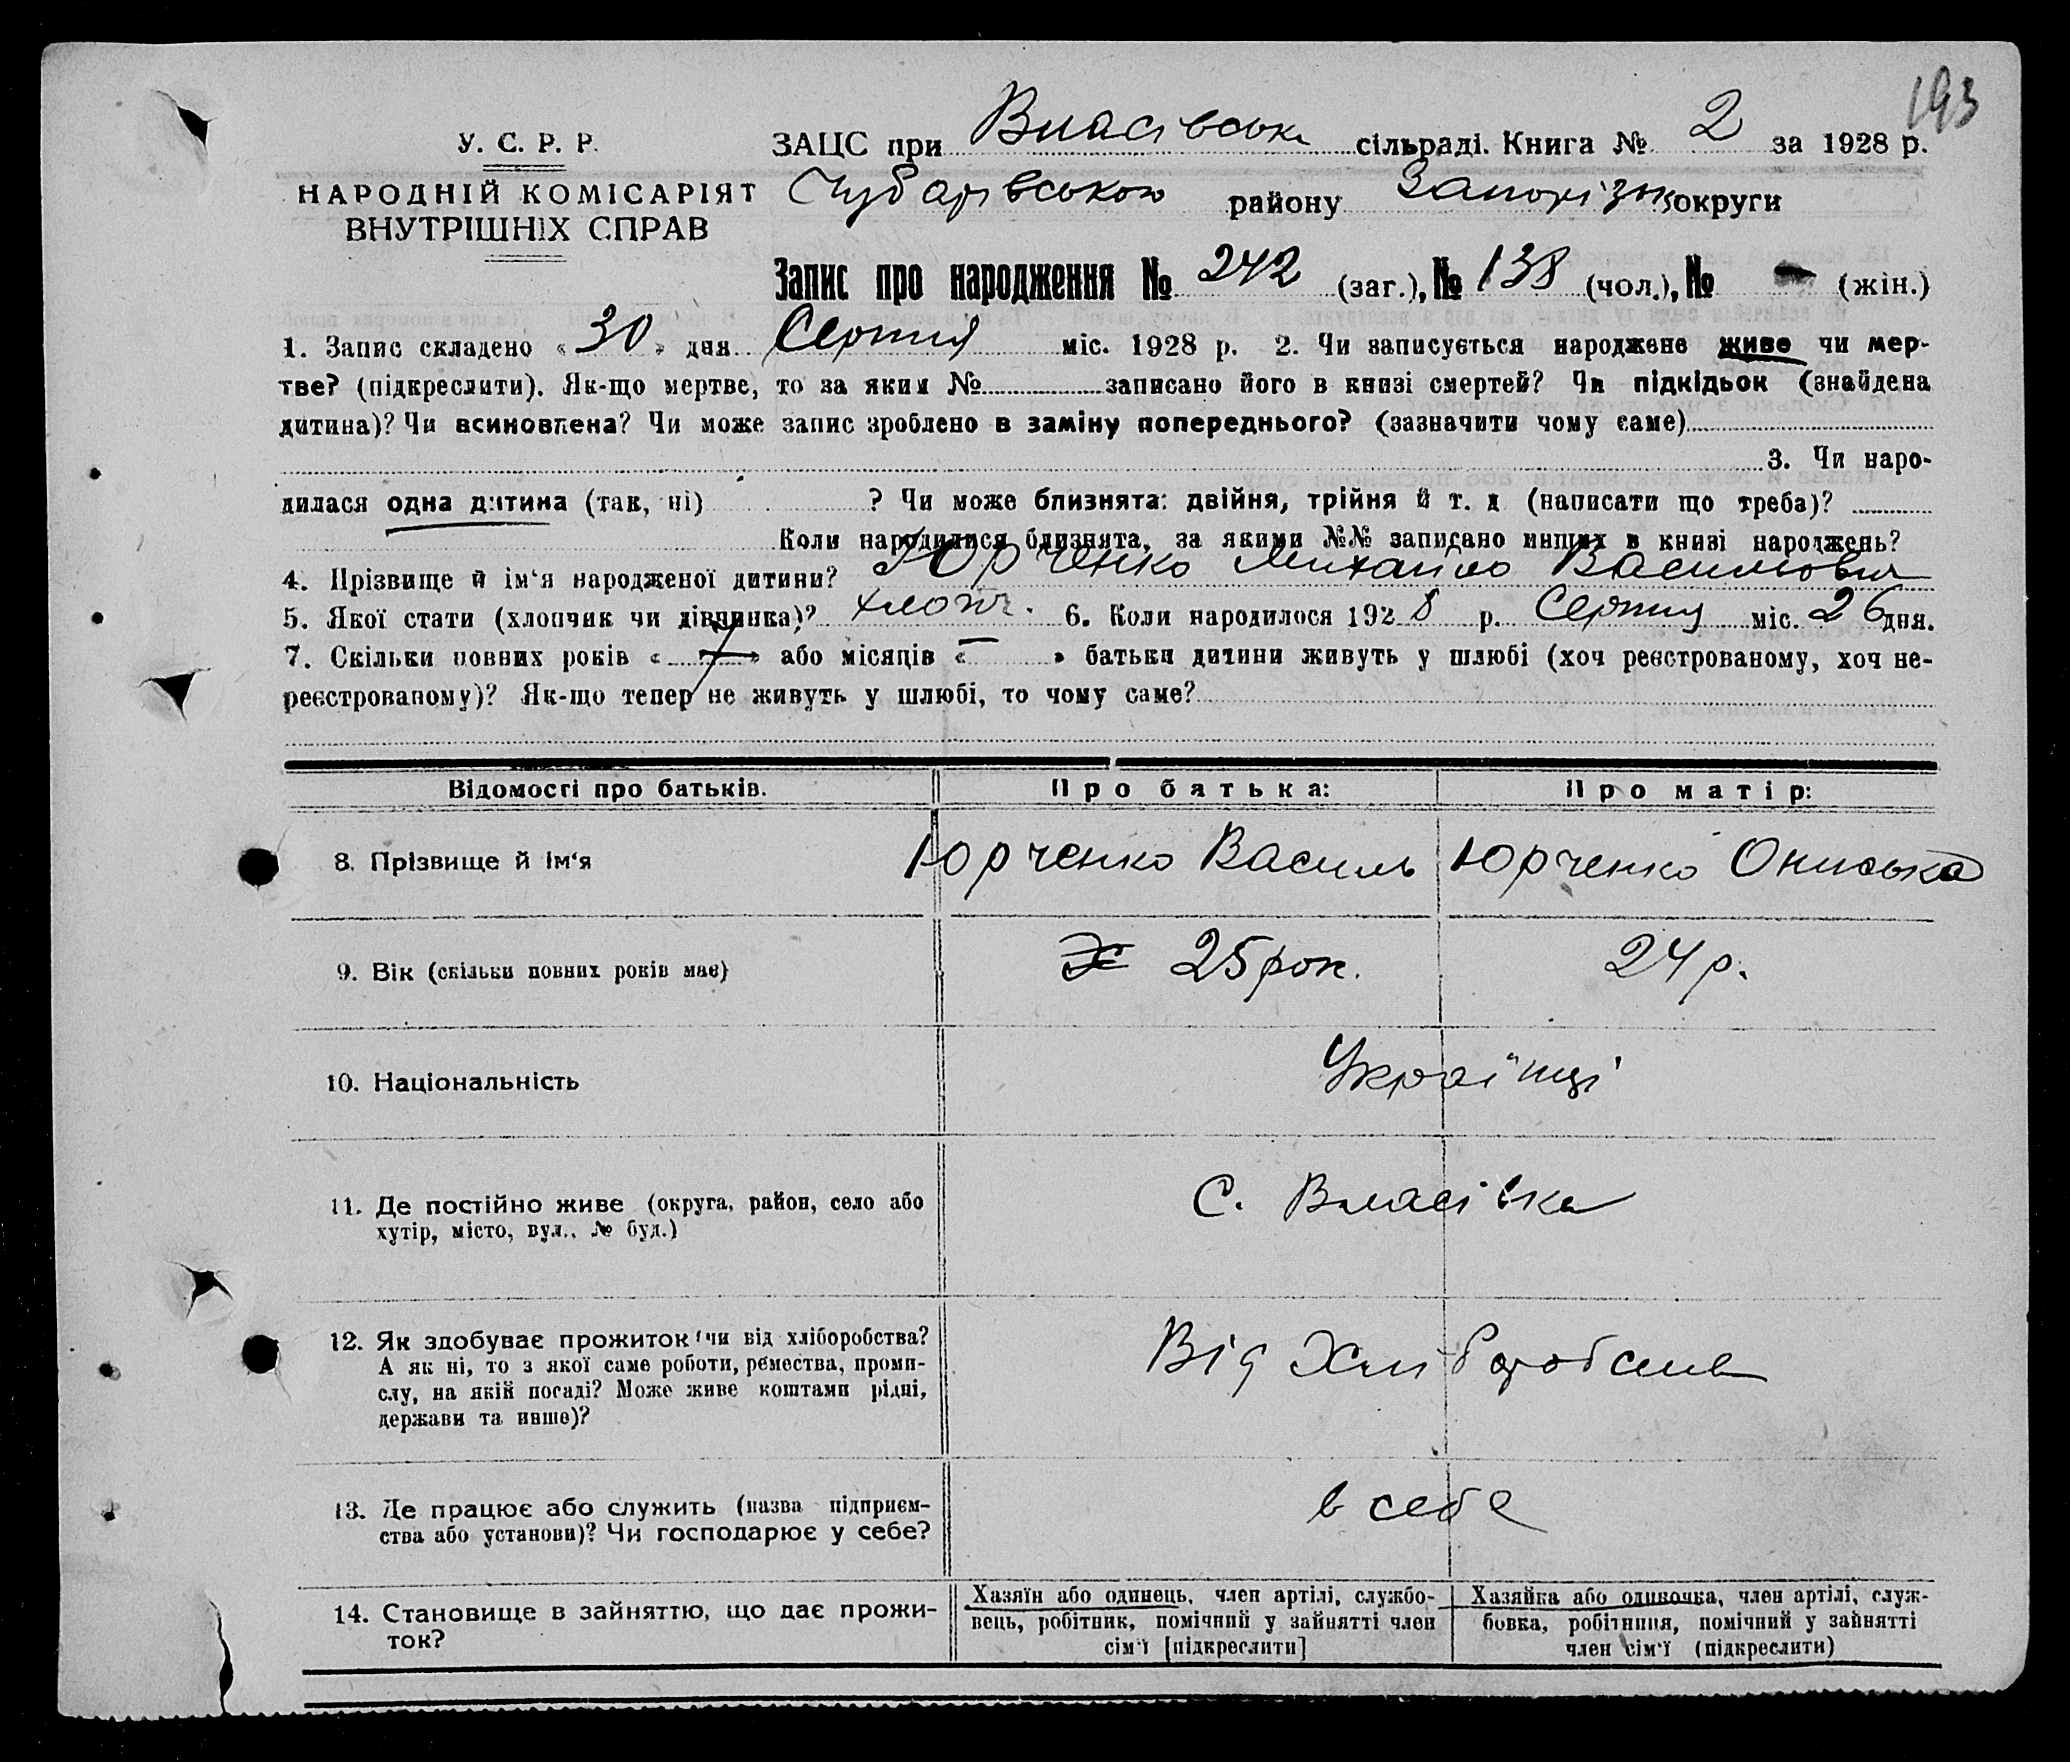 193
У. С. Р. Р.
НАРОДНІЙ КОМІСАРІЯТ
ВНУТРІШНІХ СПРАВ
ЗАЦС при Власівськ сільраді. Книга № 2 за 1928 р.
Чубарівською району Запоріжж округи
Запис про народження № 242 (заг.), № 138 (чол.), № (жін.)
1. Запис складено « 30 » дня Серпня міс. 1928 р. 2. Чи записується народжене живе чи мер-
тве? (підкреслити). Як-що мертве, то за яким № записано його в книзі смертей? Чи підкідьок (знайдена
дитина)? Чи всиновлена? Чи може запис зроблено в заміну попереднього? (зазначити чому саме)
3. Чи наро-
дилася одна дитина (так, ні) ? Чи може близнята: двійня, трійня й т. д (написати що треба)?
Коли народилися близнята, за якими №№ записано инших в книзі народжень?
4. Прізвище й ім‘я народженої дитини? Юрченко Михайло Васильович
5. Якої стати (хлопчик чи дівчинка)? хлопч. 6. Коли народилося 1928 р. Серпня міс. 26 дня.
7. Скільки повних років « 7 » або місяців « — » батьки дитини живуть у шлюбі (хоч реєстрованому, хоч не-
реєстрованому)? Як-що тепер не живуть у шлюбі, то чому саме?
Відомості про батьків. Про батька: Про матір:
8. Прізвище й ім‘я Юрченко Василь Юрченко Ониська
9. Вік (скільки повних років має) 25 рок. 24 р.
10. Національність Українці
11. Де постійно живе (округа, район, село або
хутір, місто, вул., № буд.) С. Власівка
12. Як здобуває прожиток (чи від хліборобства?
А як ні, то з якої саме роботи, ремества, проми-
слу, на якій посаді? Може живе коштами рідні,
держави та инше)? Від Хліборобств
13. Де працює або служить (назва підприєм-
ства або установи)? Чи господарює у себе? в себе
14. Становище в зайняттю, що дає прожи-
ток?
Хазяїн або одинець, член артілі, службо-
вець, робітник, помічний у зайнятті член
сім‘ї [підкреслити]
Хазяйка або одиночка, член артілі, служ-
бовка, робітниця, помічний у зайнятті
член сім‘ї (підкреслити)